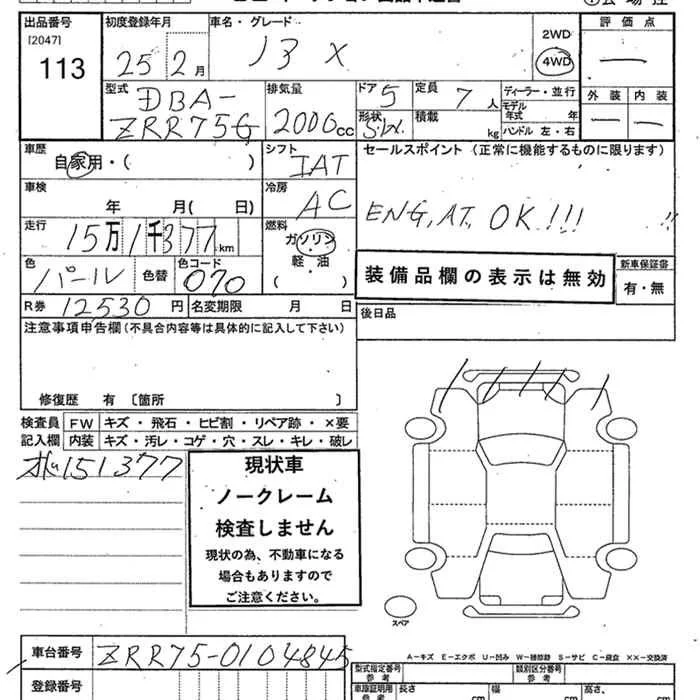 出品番号 初度登録年月 車名・グレード 評価点
[2047]
113
25 2月
13 X
2WD
4WD
型式 DBA-
ZRR75G
排気量
2000cc
ドア 5
形状
定員 7人
積載 kg
ディーラー・並行
モデル
年式 年
ハンドル 左・右
外装 内装
車歴
自家用・( )
シフト
IAT
セールスポイント (正常に機能するものに限ります)
車検
年 月( 日)
冷房
AC
ENG,AT, OK!!!
走行
15万1千377km
燃料
ガソリン
・
軽・油
( )
装備品欄の表示は無効
新車保証書
有・無
色
パール
色替
色コード
070
R券 12530円 名変期限 月 日
後日品
注意事項申告欄(不具合内容等は具体的に記入して下さい)
修復歴 有〔箇所 〕
検査員 FW キズ・飛石・ヒビ割・リペア跡・×要
記入欄 内装 キズ・汚レ・コゲ・穴・スレ・キレ・破レ
151377
現状車
ノークレーム
検査しません
現状の為、不動車になる
場合もありますので
ご注意ください。
スペア
A-キズ E-エクボ U-凹み W-補修跡 S-サビ C-腐食 ××-交換済
車台番号 ZRR75-0104845
登録番号
型式指定番号
参考
類別区分番号
参考
車庫証明用
参考
長さ cm 幅 cm 高さ cm